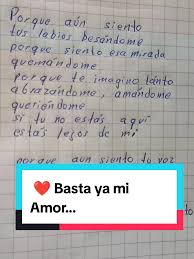 Porque aún siento
tus labios besándome
porque siento esa mirada
quemándome
porque te imagino tánto
abrazándome, amándome
queriéndome
si tu no estás aquí
estás lejos de mi
porque aun siento tu voz
❤️ Basta ya mi
Amor...